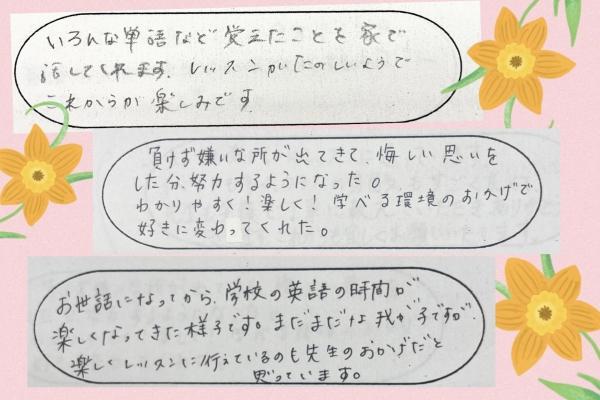 いろんな単語など覚えたことを家で
話してくれます。レッスンがたのしいようで
これからが楽しみです
負けず嫌いな所が出てきて、悔しい思いを
した分、努力するようになった。
わかりやすく!楽しく!学べる環境のおかげで
好きに変わってくれた。
お世話になってから、学校の英語の時間が
楽しくなってきた様子です。まだまだな我が子ですが、
楽しくレッスンに行えているのも先生のおかげだと
思っています。